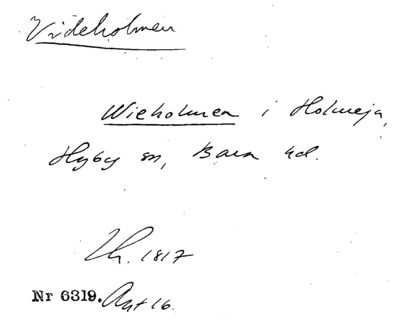 Videholmen
Wieholmen i Holmeja,
Hyby sn, Bara hd.
Th. 1817
Nr 6319. Ant 16.